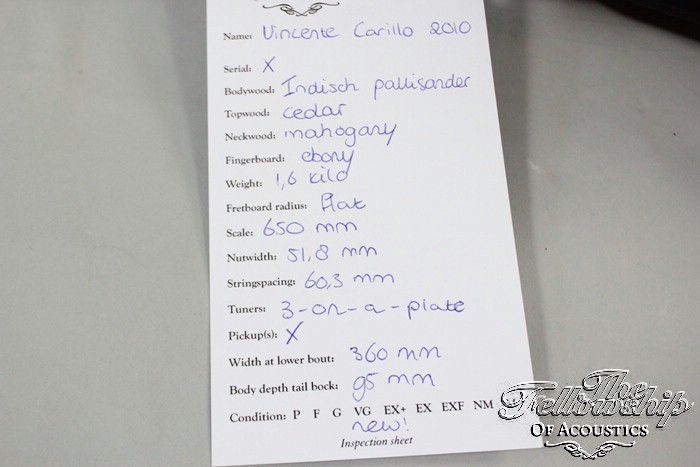 Name: Vincente Carillo 2010
Serial: X
Bodywood: Indisch pallisander
Topwood: cedar
Neckwood: mahogany
Fingerboard: ebony
Weight: 1,6 kilo
Fretboard radius: Flat
Scale: 650 mm
Nutwidth: 51,8 mm
Stringspacing: 60,3 mm
Tuners: 3-on-a-plate
Pickup(s): X
Width at lower bout: 360 mm
Body depth tail bock: 95 mm
Condition: P F G VG EX+ EX EXF NM
new!
Inspection sheet
The
Fellowship
OF ACOUSTICS